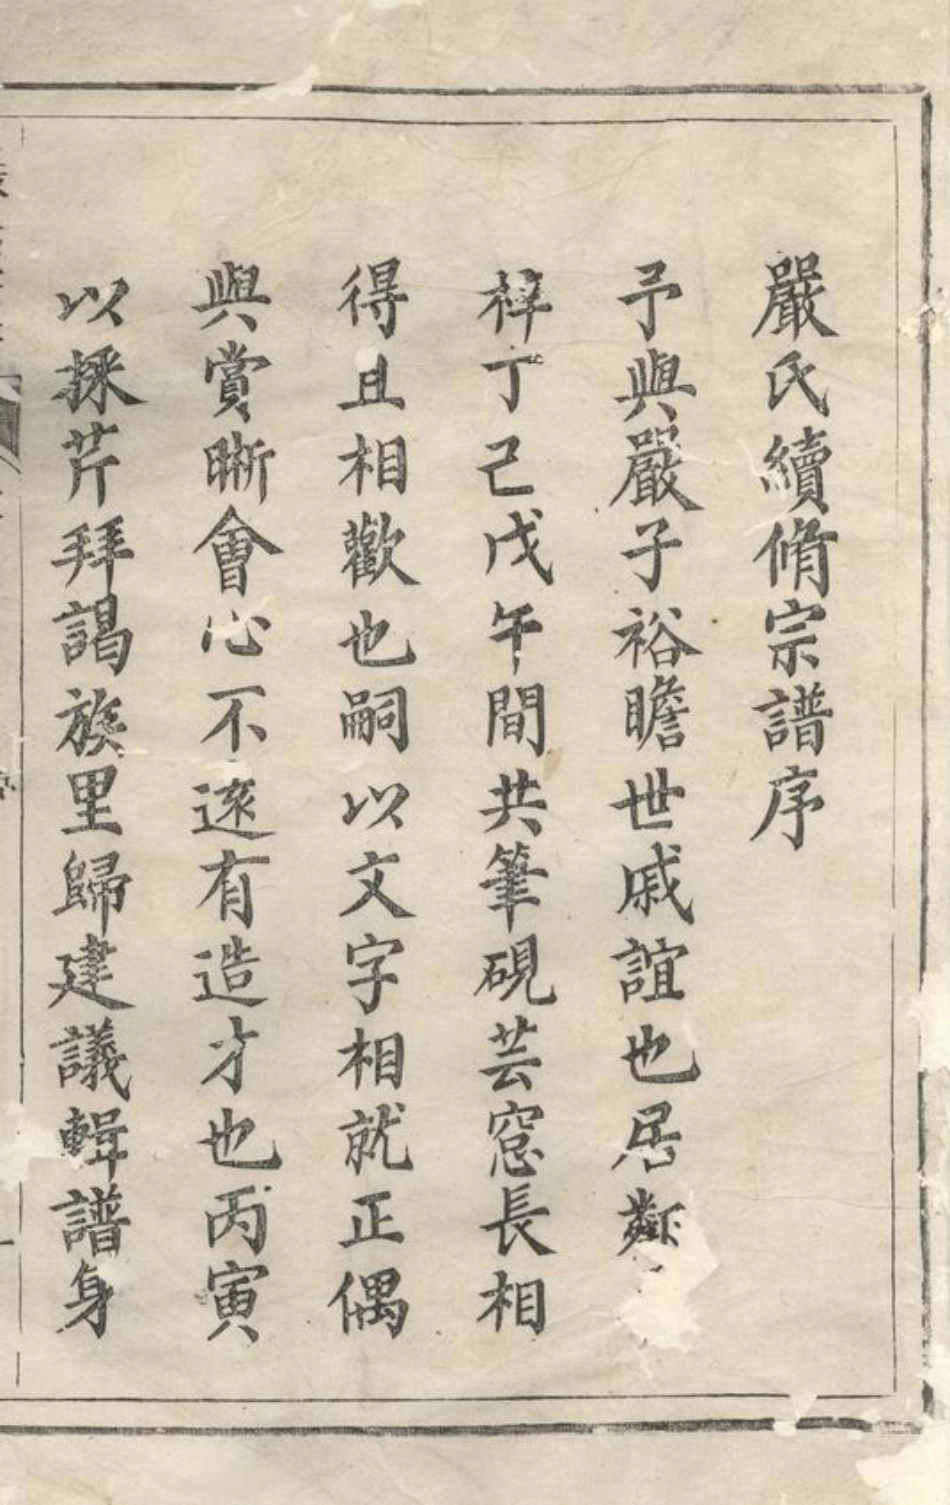 嚴氏續脩宗譜序
予與嚴子裕瞻世戚誼也居鄰
梓丁己戊午間共筆硯芸窓長相
得且相歡也嗣以文字相就正偶
與賞晰會心不遠有造才也丙寅
以採芹拜謁族里歸建議輯譜身